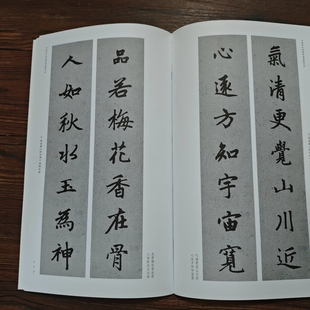 氣清更覺山川近
心遠方知宇宙寬
品若梅花香在骨
人如秋水玉為神